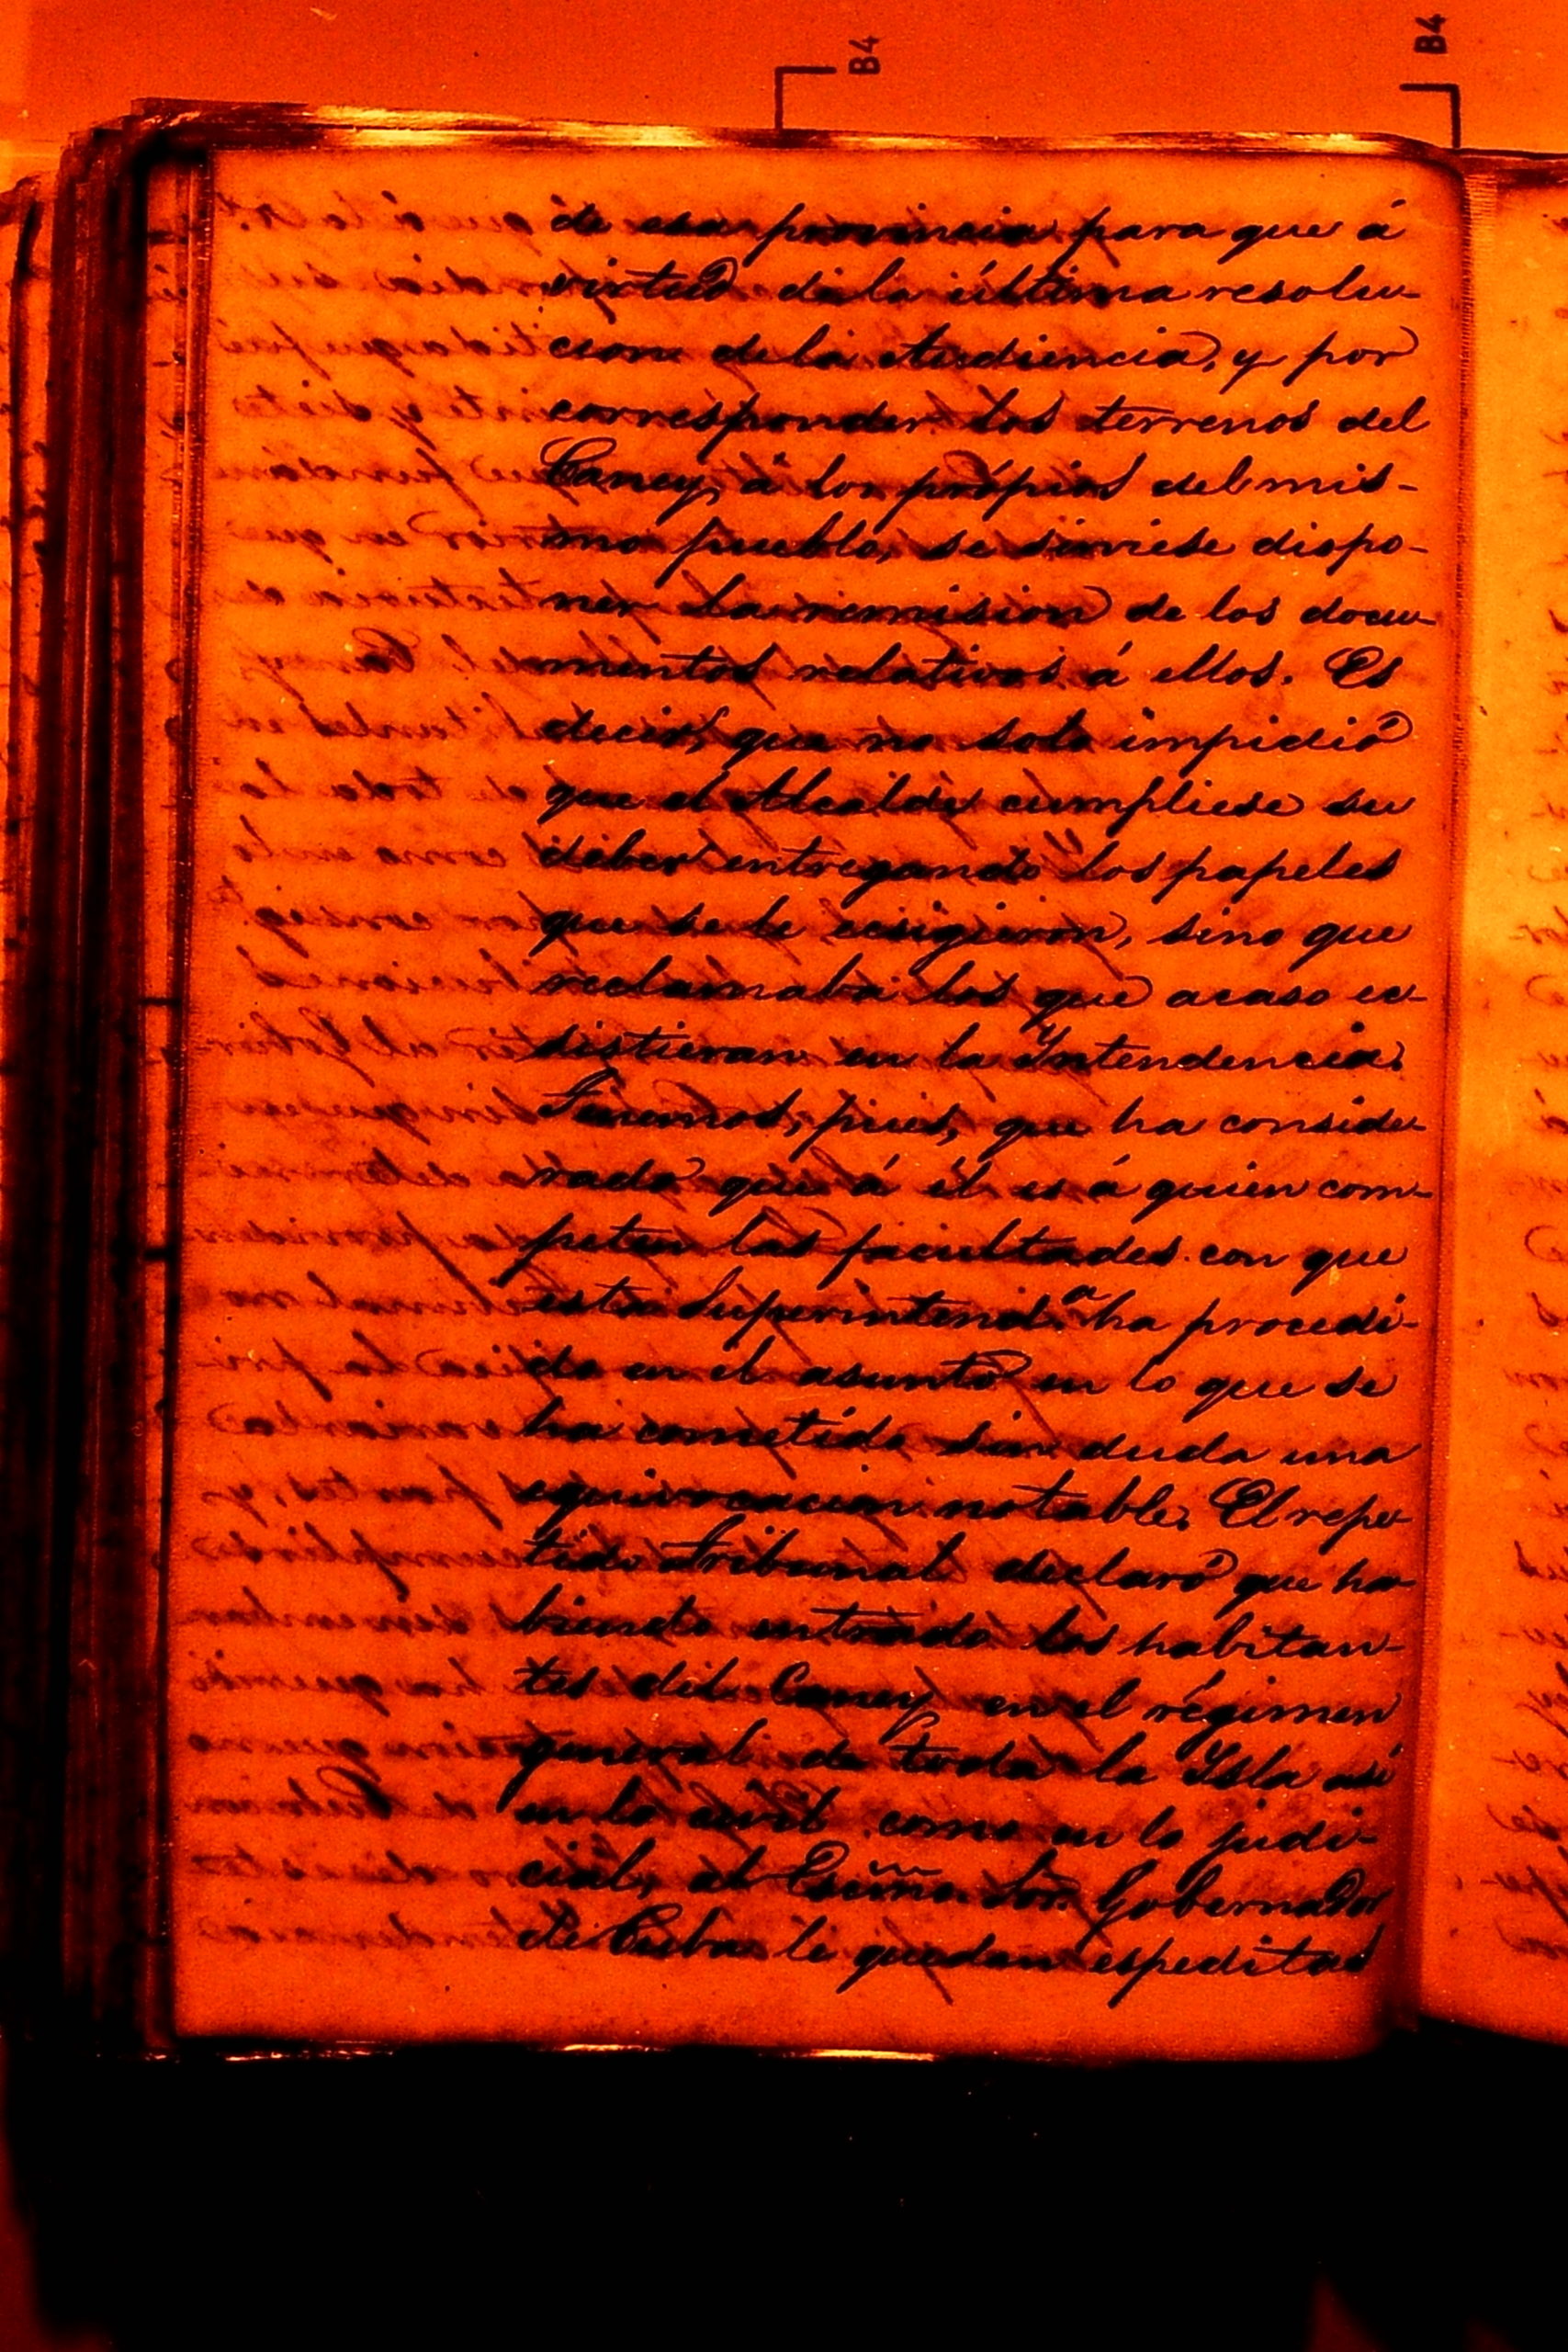 B4 B4
de esa provincia para que á
virtud de la última resolu-
cion de la Audiencia, y por
corresponder los terrenos del
Caney, á los própios del mis-
mo pueblo, se sirviese dispo-
ner la remision de los docu-
mentos relativos á ellos. Es
decir, que no solo impidió
que el Alcalde cumpliese su
deber entregando los papeles
que se le ecsigieron, sino que
reclamaba los que acaso ec-
sistieran en la Intendencia.
Tenemos, pues, que ha conside-
rado que á él es á quien com-
peten las facultades con que
esta Superintend.a ha procedi-
do en el asunto en lo que se
ha cometido sin duda una
equivocacion notable. El repe-
tido Tribunal declaró que ha-
biendo entrado los habitan-
tes del Caney en el régimen
general de toda la Isla así
en lo civil como en lo judi-
cial, al Escmo. Sor. Gobernador
de Cuba le quedan espeditas